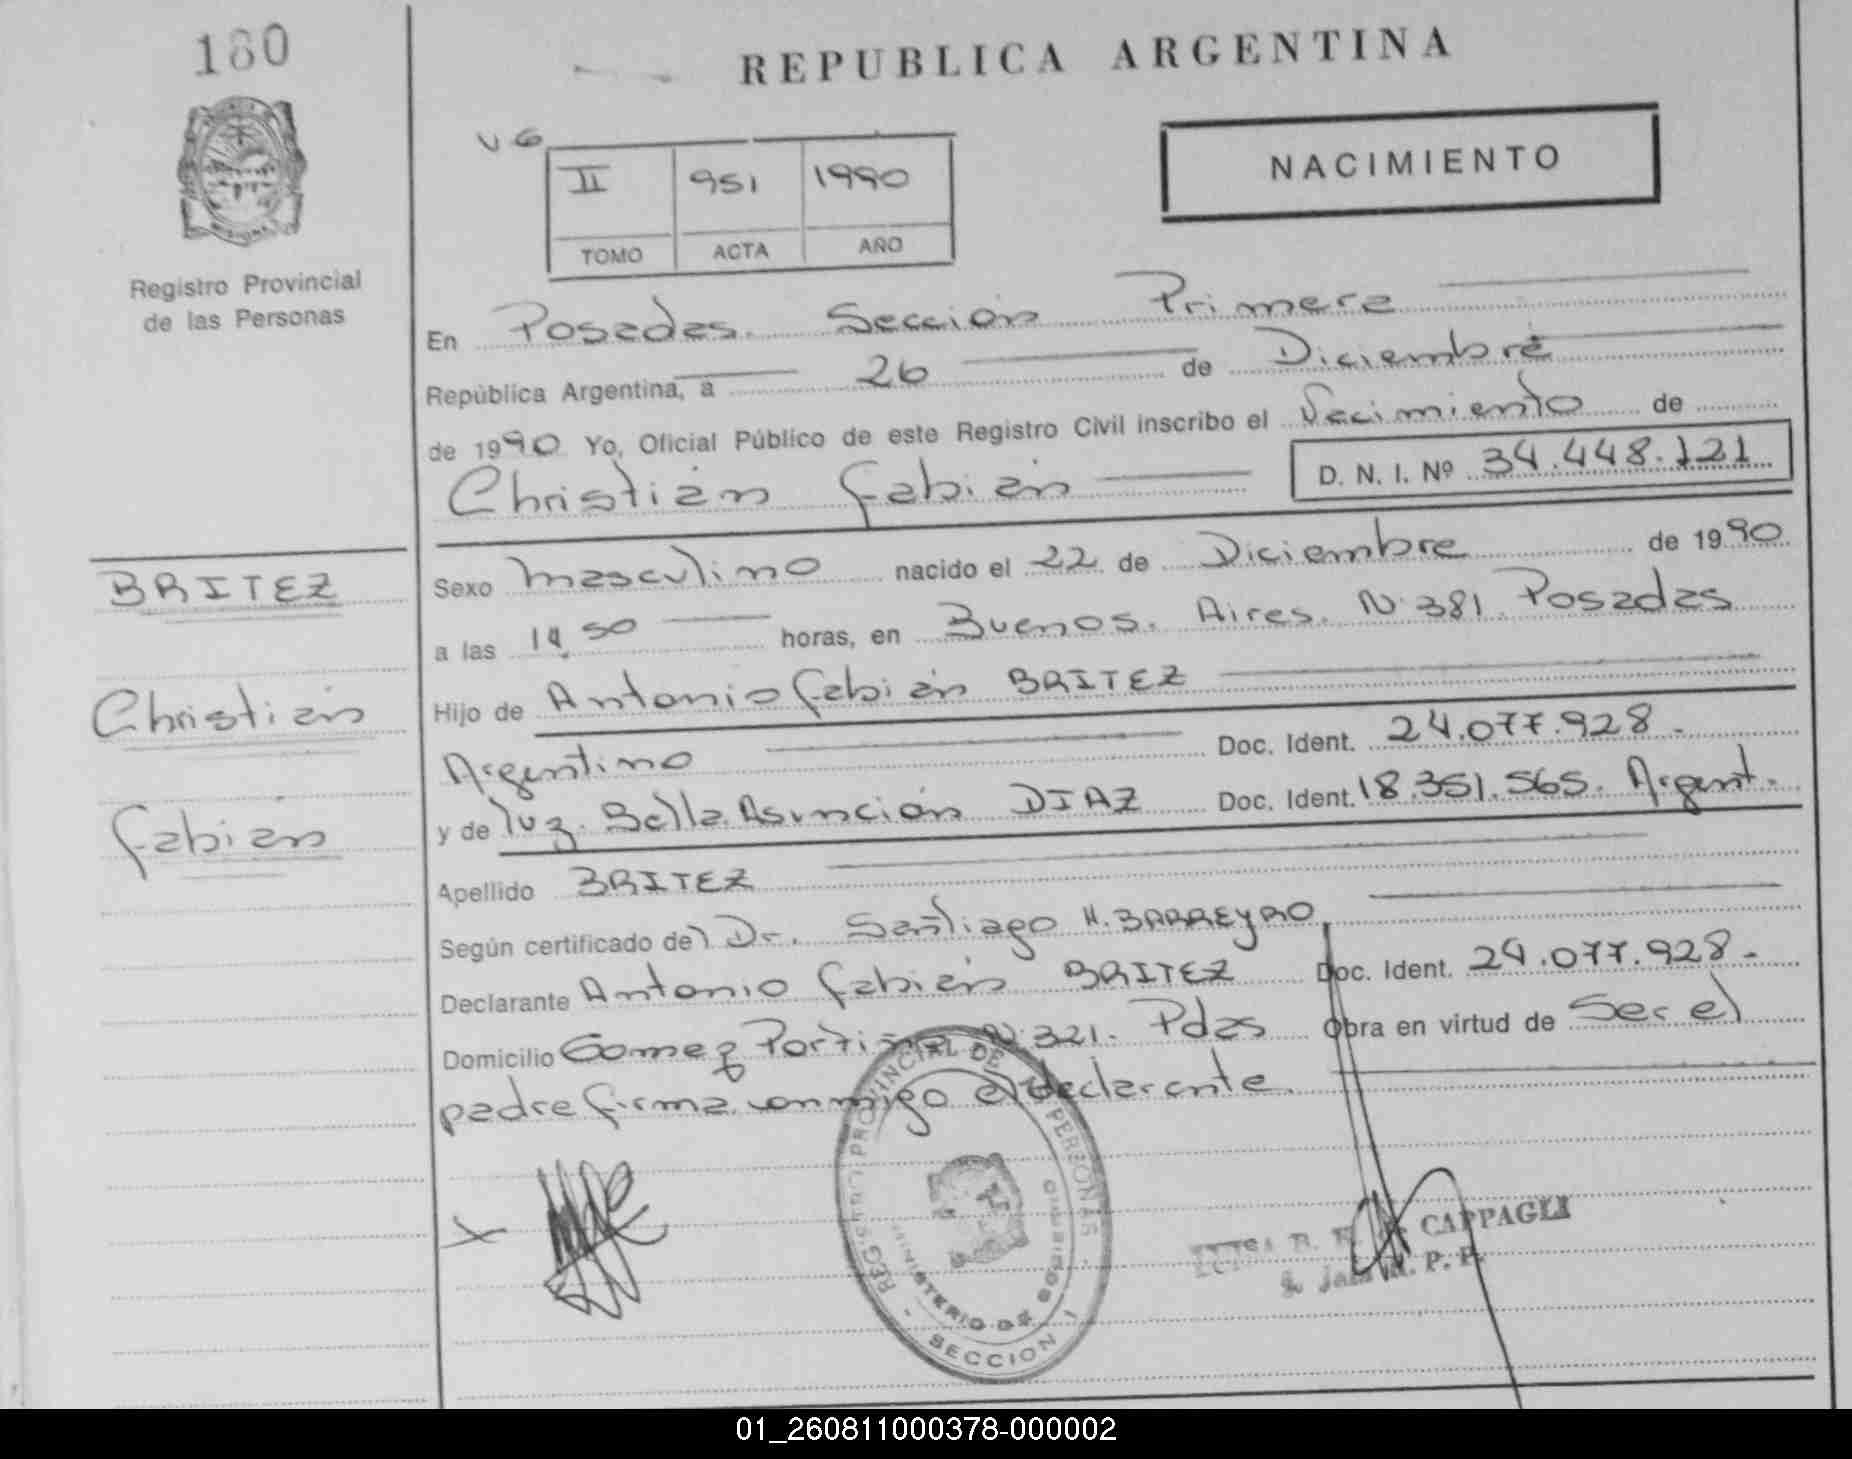 180
REPUBLICA ARGENTINA
V G
II 951 1990
TOMO ACTA AÑO
NACIMIENTO
Registro Provincial
de las Personas
En Posadas. Sección Primera
República Argentina, a 26 de Diciembre
de 1990 Yo, Oficial Público de este Registro Civil inscribo el Nacimiento de
Christián Fabián D. N. I. Nº 34.448.121
Sexo masculino nacido el 22 de Diciembre de 1990
a las 14,50 horas, en Buenos. Aires. N. 381. Posadas
Hijo de Antonio Fabián BRITEZ
Argentino Doc. Ident. 24.077.928.-
y de luz. Bella. Asunción DIAZ Doc. Ident. 18.351.565. Argent.
Apellido BRITEZ
Según certificado del Dr. Santiago H. BARREYRO
Declarante Antonio Fabián BRITEZ Doc. Ident. 24.077.928.-
Domicilio Gomez Portiño N. 321. Pdas Obra en virtud de Ser el
padre firma conmigo el declarante.
BRITEZ
Christián
Fabián
REGISTRO PROVINCIAL DE LAS PERSONAS
MINISTERIO DE GOBIERNO
SECCION 1
CAPPAGLI
01_260811000378-000002